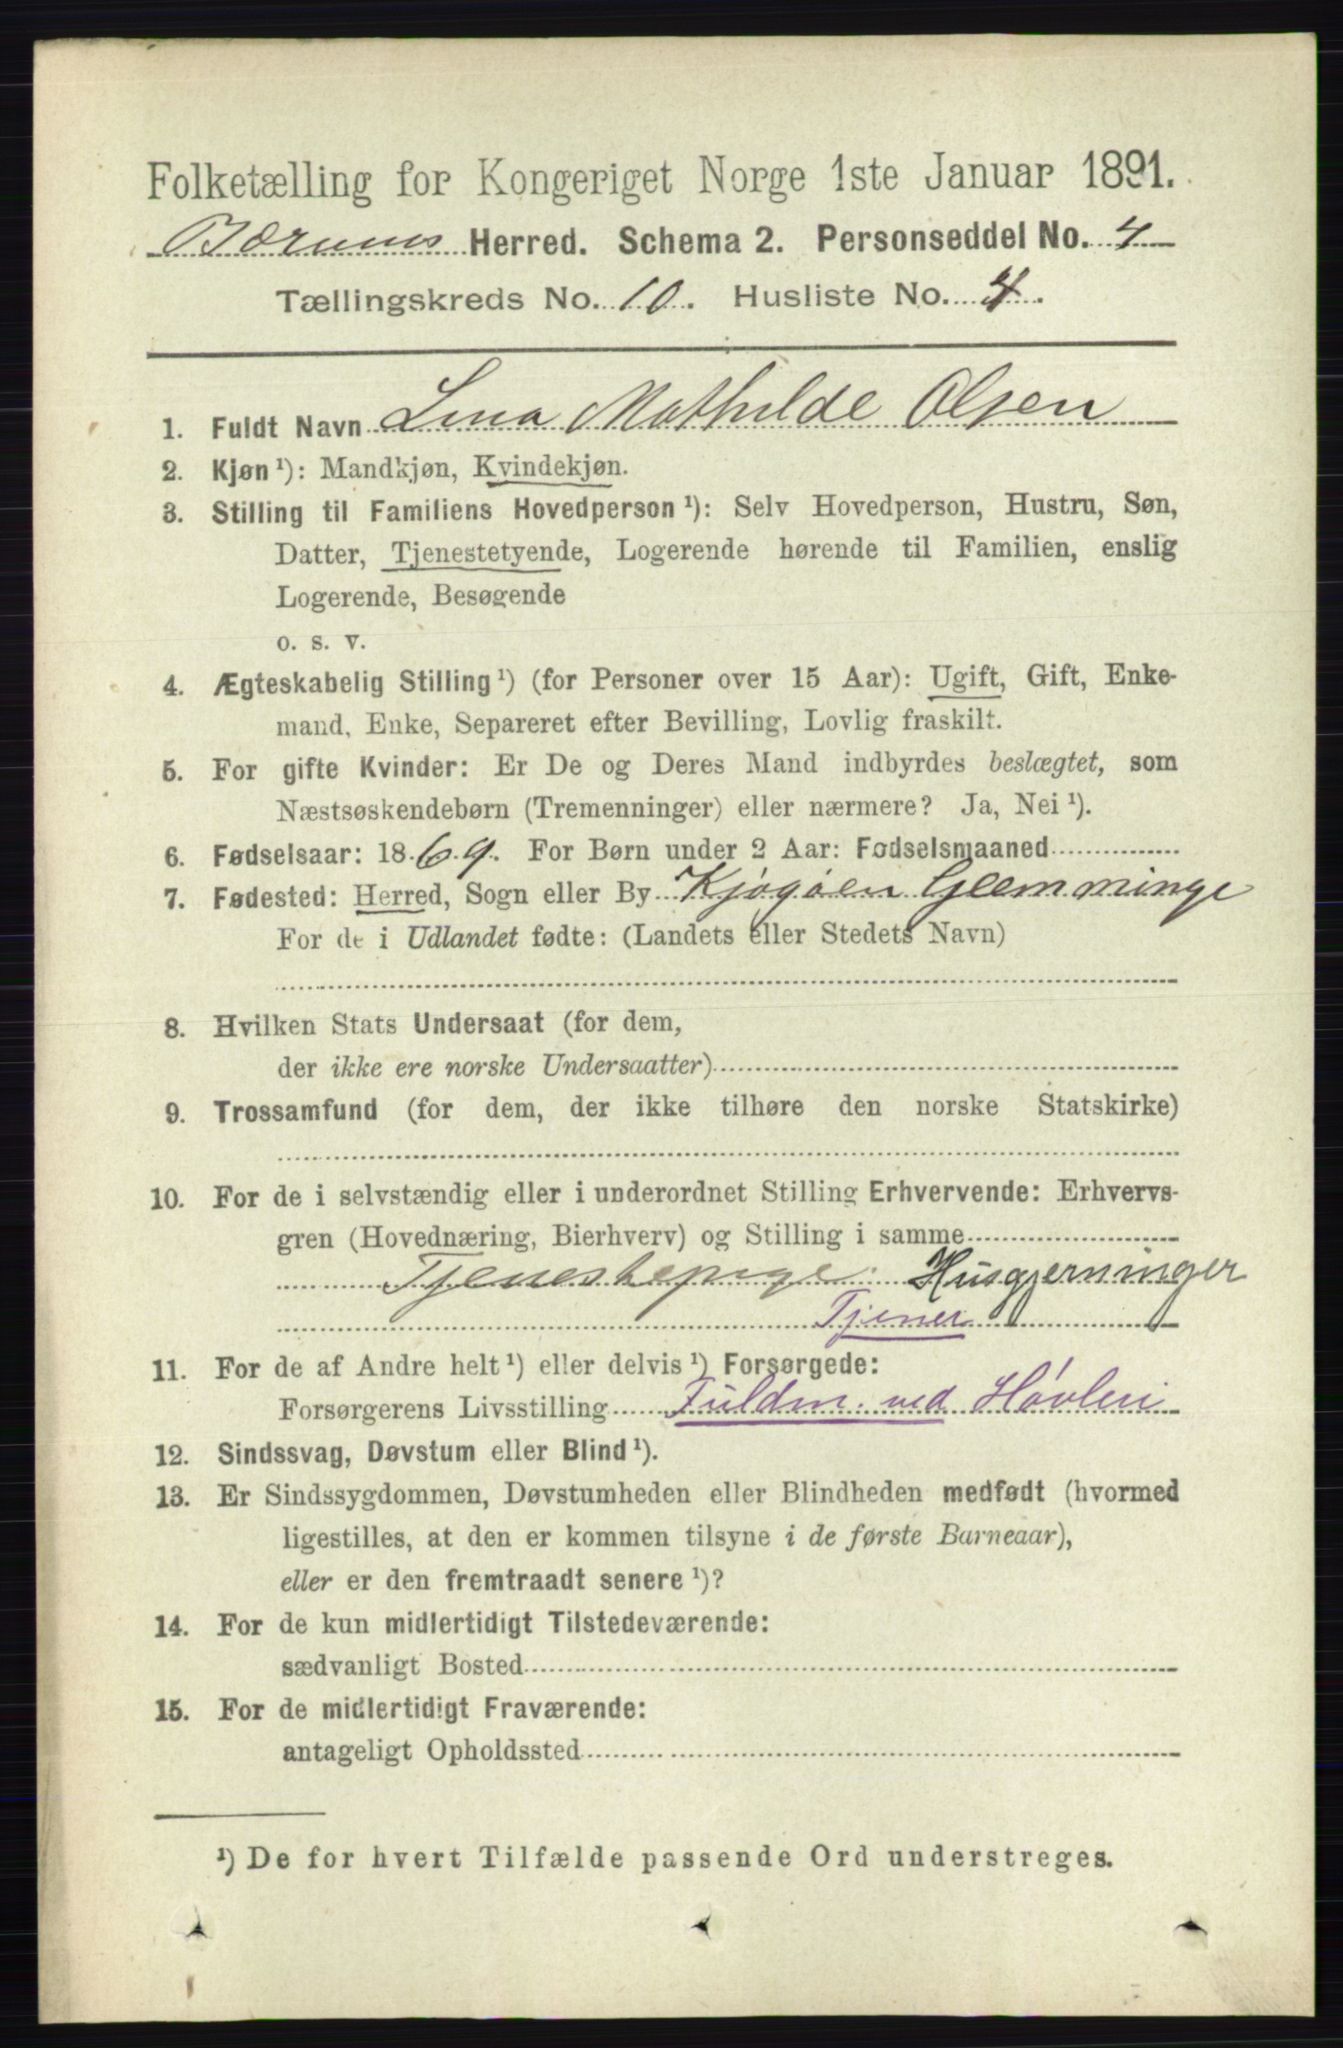 Folketælling for Kongeriget Norge 1ste Januar 1891.
Bærums Herred. Schema 2. Personseddel No. 4
Tællingskreds No. 10. Husliste No. 4.
1. Fuldt Navn Lina Mathilde Olsen
2. Kjøn ¹): Mandkjøn, Kvindekjøn.
3. Stilling til Familiens Hovedperson ¹): Selv Hovedperson, Hustru, Søn,
Datter, Tjenestetyende, Logerende hørende til Familien, enslig
Logerende, Besøgende
o. s. v.
4. Ægteskabelig Stilling ¹) (for Personer over 15 Aar): Ugift, Gift, Enke-
mand, Enke, Separeret efter Bevilling, Lovlig fraskilt.
5. For gifte Kvinder: Er De og Deres Mand indbyrdes beslægtet, som
Næstsøskendebørn (Tremenninger) eller nærmere? Ja, Nei ¹).
6. Fødselsaar: 1869. For Børn under 2 Aar: Fødselsmaaned
7. Fødested: Herred, Sogn eller By Kjøgøen Glemminge
For de i Udlandet fødte: (Landets eller Stedets Navn)
8. Hvilken Stats Undersaat (for dem,
der ikke ere norske Undersaatter)
9. Trossamfund (for dem, der ikke tilhøre den norske Statskirke)
10. For de i selvstændig eller i underordnet Stilling Erhvervende: Erhvervs-
gren (Hovednæring, Bierhverv) og Stilling i samme
Tjenestepige. Husgjerninger
Tjener
11. For de af Andre helt ¹) eller delvis ¹) Forsørgede:
Forsørgerens Livsstilling Fuldm. ved Høvleri
12. Sindssvag, Døvstum eller Blind ¹).
13. Er Sindssygdommen, Døvstumheden eller Blindheden medfødt (hvormed
ligestilles, at den er kommen tilsyne i de første Barneaar),
eller er den fremtraadt senere ¹)?
14. For de kun midlertidigt Tilstedeværende:
sædvanligt Bosted
15. For de midlertidigt Fraværende:
antageligt Opholdssted
¹) De for hvert Tilfælde passende Ord understreges.